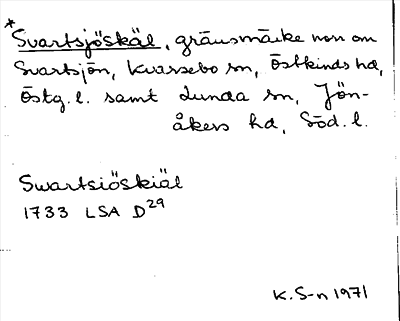 * Svartsjöskäl, gränsmärke norr om
Svartsjön, Kvarsebo sn, Östkinds hd,
Östg. l. samt Lunda sn, Jön-
åkers hd, Söd. l.
Swartsiöskiäl
1733 LSA D29
K. S-n 1971